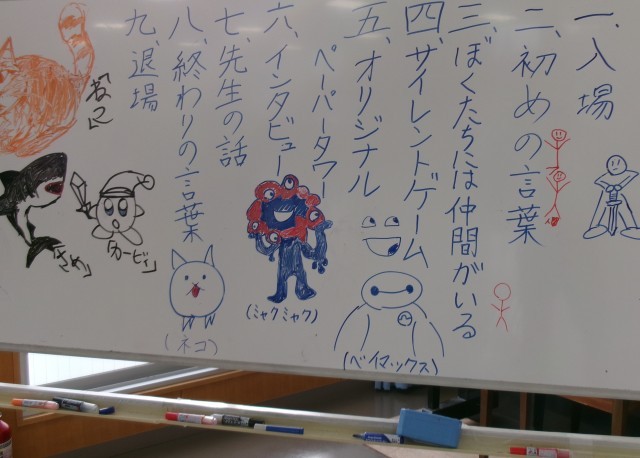 一、入場
二、初めの言葉
三、ぼくたちには仲間がいる
四、サイレントゲーム
五、オリジナル
ペーパータワー
六、インタビュー
七、先生の話
八、終わりの言葉
九、退場
(ベイマックス)
(ミャクミャク)
(ネコ)
「カービィ」
「さめ」